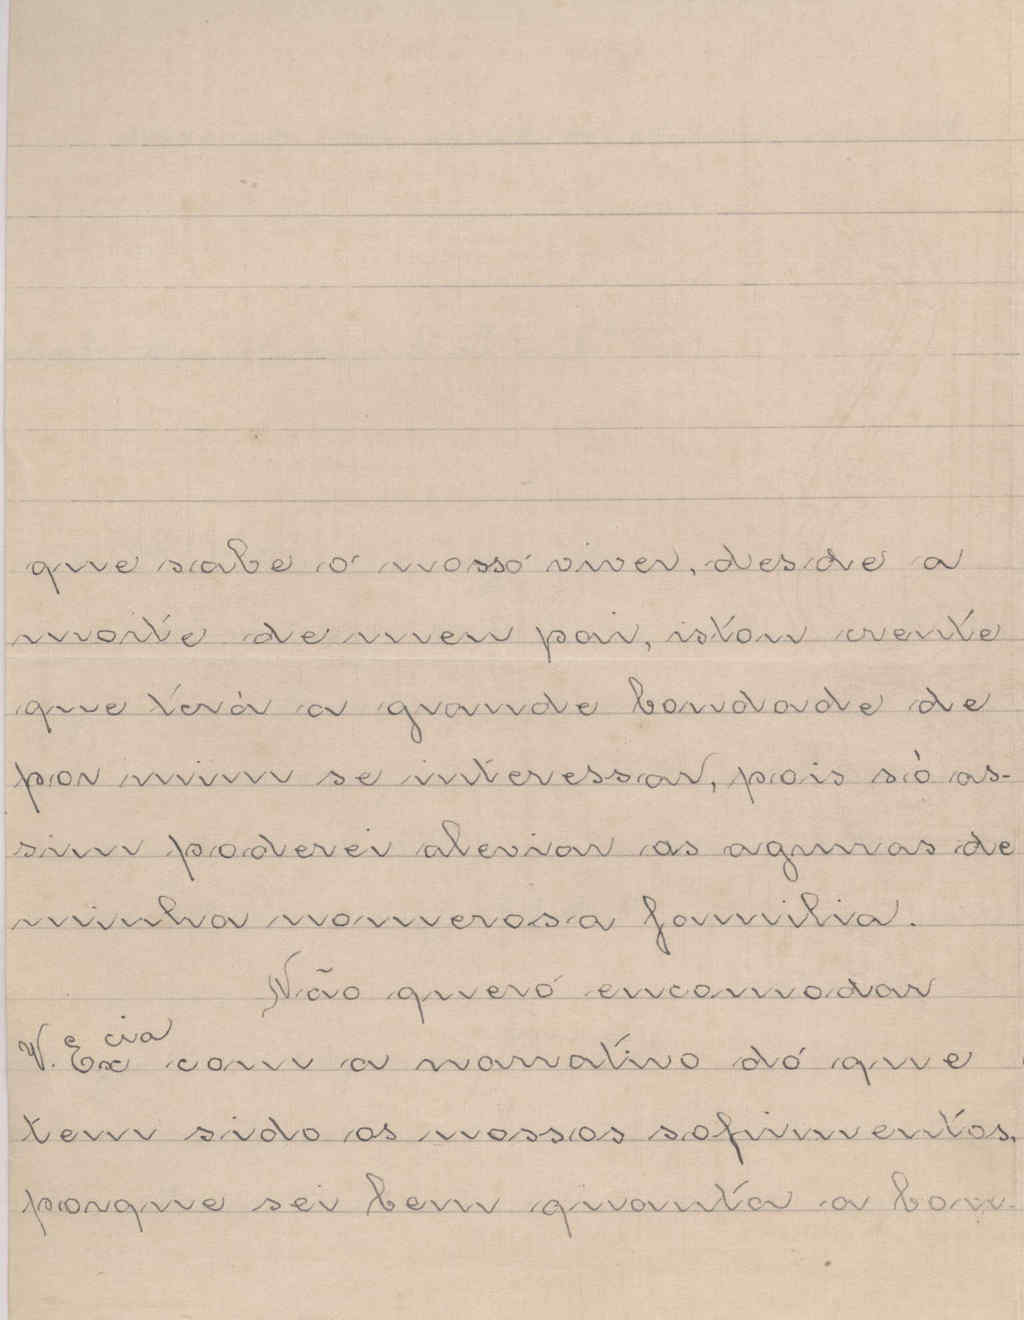 que sabe o nosso viver, desde a
morte de meu pai, istou crente
que terá a grande bondade de
por mim se interessar, pois só as-
sim poderei aleviar as agruras de
minha nomerosa familia.
Não quero encomodar
V. Excia com a narrativo do que
tem sido os nossos sofrimentos,
porque sei bem quanta a bon-